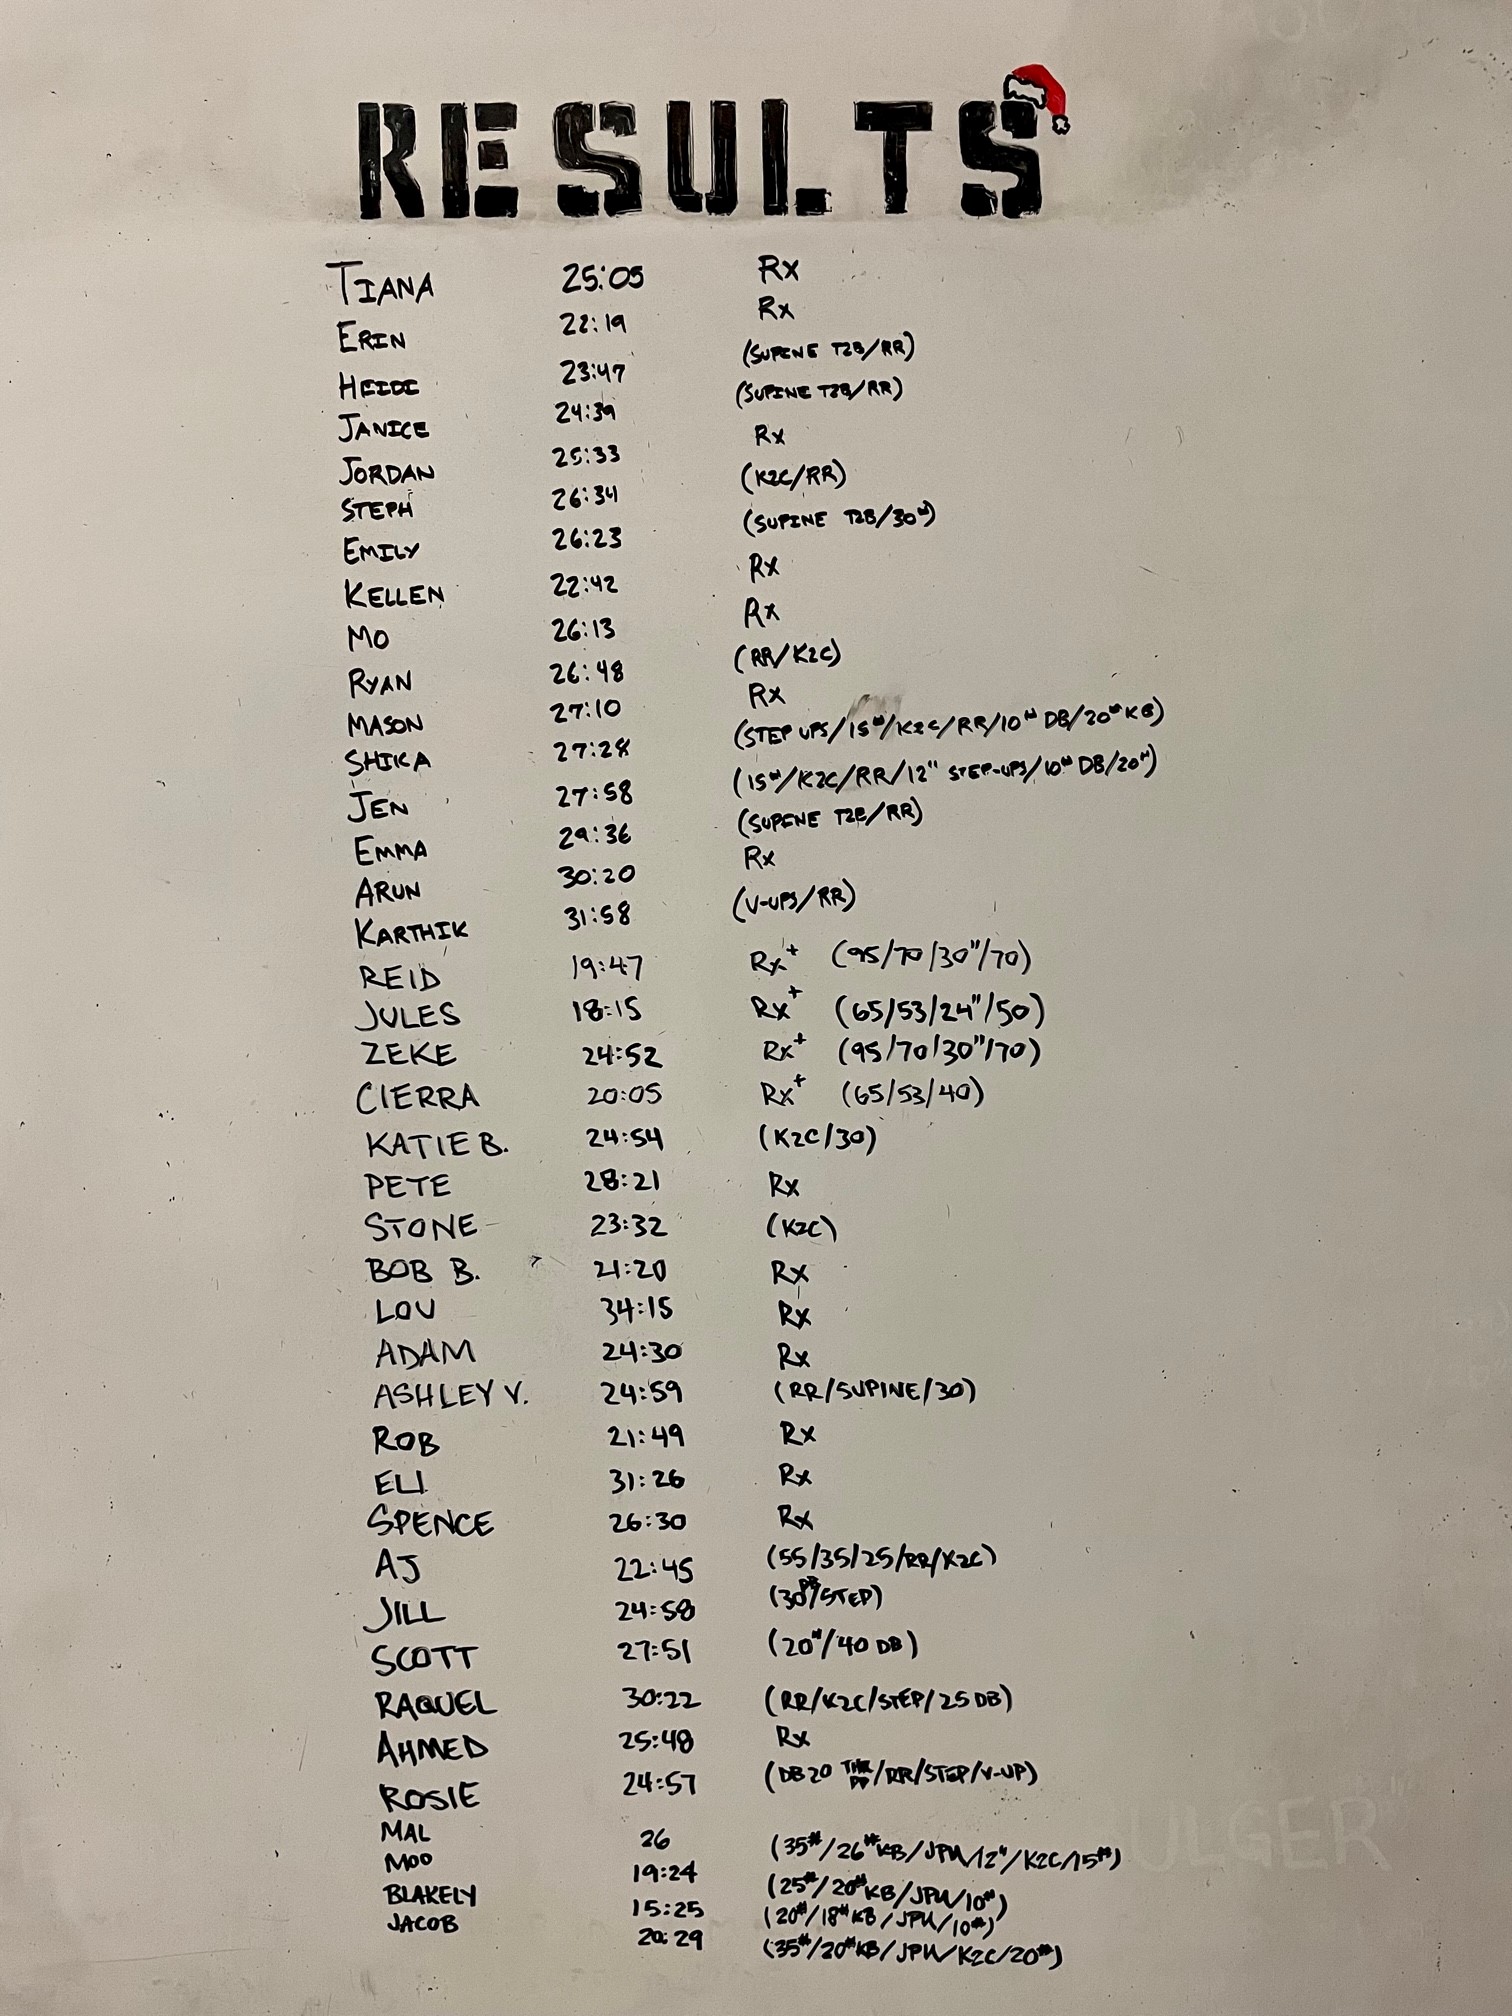 RESULTS
TIANA 25:05 Rx
ERIN 22:19 Rx
HEIDI 23:47 (SUPINE T2B/RR)
JANICE 24:39 (SUPINE T2B/RR)
JORDAN 25:33 Rx
STEPH 26:34 (K2C/RR)
EMILY 26:23 (SUPINE T2B/30#)
KELLEN 22:42 Rx
MO 26:13 Rx
RYAN 26:48 (RR/K2C)
MASON 27:10 Rx
SHIKA 27:28 (STEP UPS/15#/K2C/RR/10# DB/20# KB)
JEN 27:58 (15#/K2C/RR/12" STEP-UPS/10# DB/20#)
EMMA 29:36 (SUPINE T2B/RR)
ARUN 30:20 Rx
KARTHIK 31:58 (V-UPS/RR)
REID 19:47 Rx+ (95/70/30"/70)
JULES 18:15 Rx+ (65/53/24"/50)
ZEKE 24:52 Rx+ (95/70/30"/70)
CIERRA 20:05 Rx+ (65/53/40)
KATIE B. 24:54 (K2C/30)
PETE 28:21 Rx
STONE 23:32 (K2C)
BOB B. 21:20 Rx
LOU 34:15 Rx
ADAM 24:30 Rx
ASHLEY V. 24:59 (RR/SUPINE/30)
ROB 21:49 Rx
ELI 31:26 Rx
SPENCE 26:30 Rx
AJ 22:45 (55/35/25/RR/K2C)
JILL 24:58 (30 DB/STEP)
SCOTT 27:51 (20"/40 DB)
RAQUEL 30:22 (RR/K2C/STEP/25 DB)
AHMED 25:48 Rx
ROSIE 24:57 (DB20 /RR/STEP/V-UP)
MAL 26 (35#/26#KB/JPU/12"/K2C/15#)
MOO 19:24 (25#/20#KB/JPU/10#)
BLAKELY 15:25 (20#/18#KB/JPU/10#)
JACOB 20:29 (35#/20#KB/JPU/K2C/20#)
ULGER"